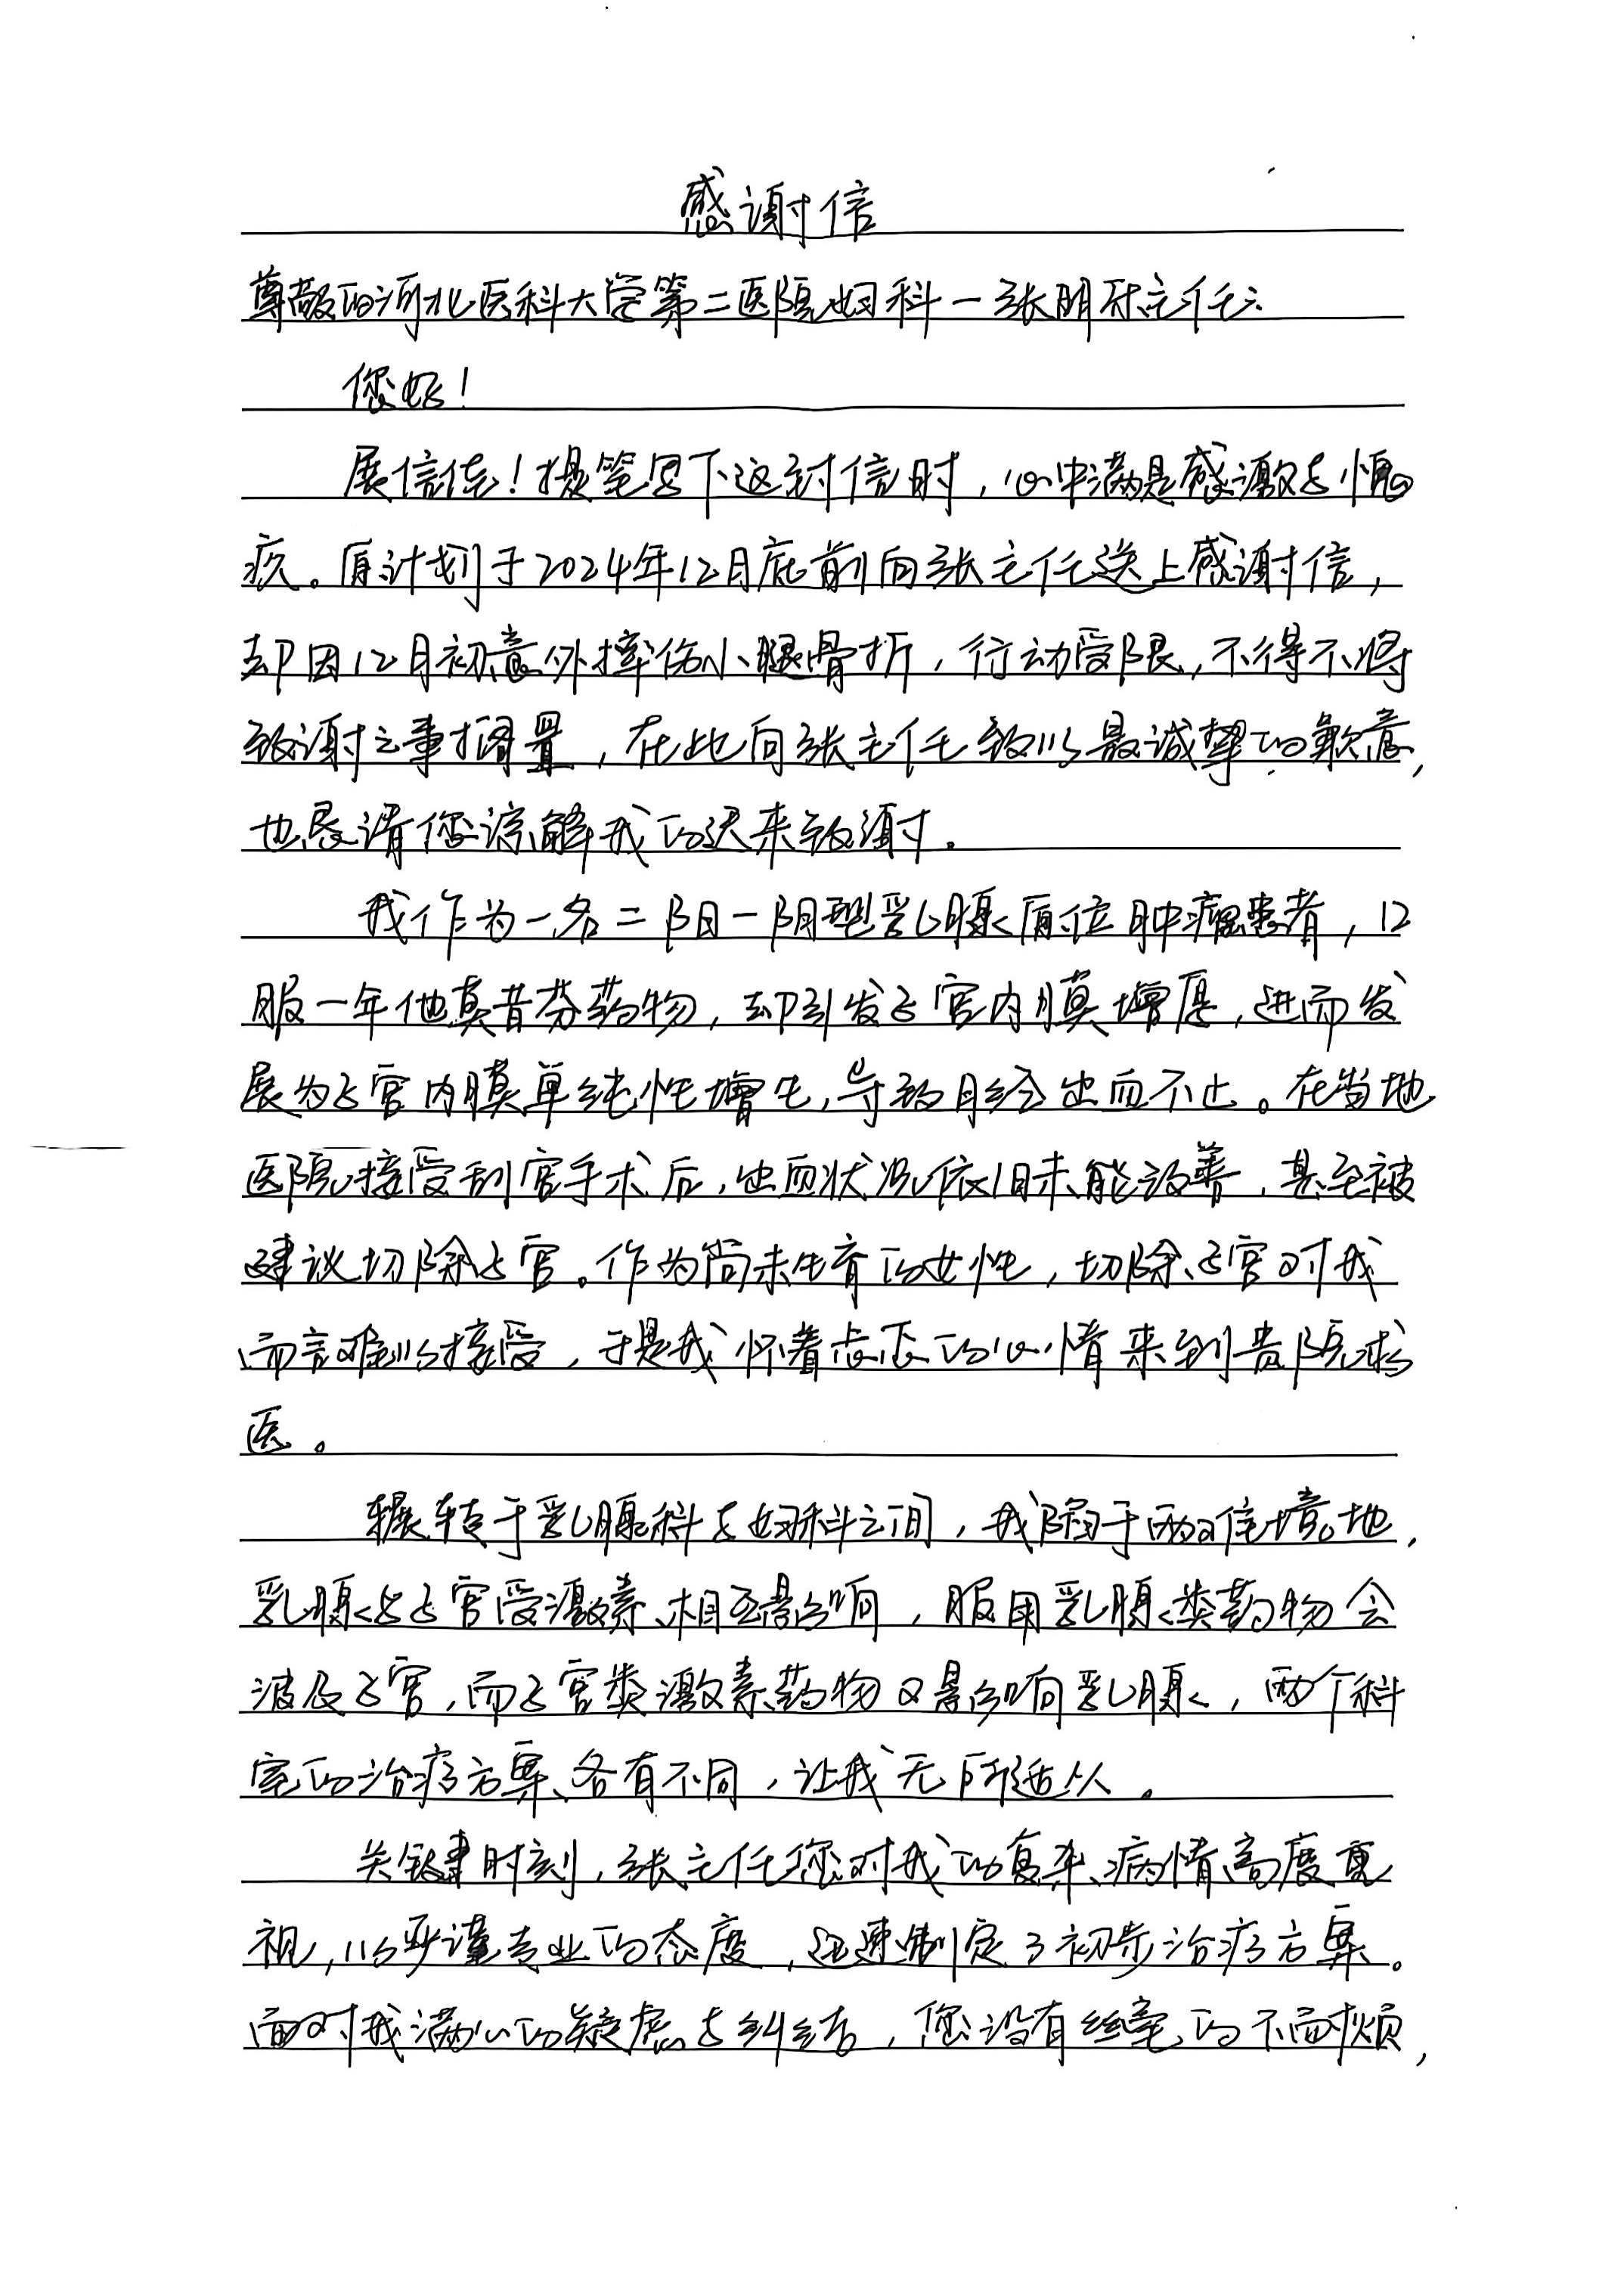 感谢信
尊敬的河北医科大学第二医院妇科一张明主任:
您好!
展信佳!提笔写下这封信时,心中满是感激与愧
疚。原计划于2024年12月底前向张主任送上感谢信,
却因12月初意外摔伤小腿骨折,行动受限,不得不将
致谢之事搁置,在此向张主任致以最诚挚的歉意,
也恳请您谅解我的迟来致谢。
我作为一名二阳一阴型乳腺原位肿瘤患者,口
服一年他莫昔芬药物,却引发子宫内膜增厚,进而发
展为子宫内膜单纯性增生,导致月经出血不止。在当地
医院接受刮宫手术后,出血状况依旧未能改善,甚至被
建议切除子宫。作为尚未生育的女性,切除子宫对我
而言难以接受,于是我怀着忐忑的心情来到贵院求
医。
辗转于乳腺科与妇科之间,我陷于两难境地,
乳腺与子宫受激素相互影响,服用乳腺类药物会
波及子宫,而子宫类激素药物又影响乳腺,两个科
室的治疗方案各有不同,让我无所适从。
关键时刻,张主任您对我的复杂病情高度重
视,以严谨专业的态度,迅速制定了初步治疗方案。
面对我满心的疑虑与纠结,您没有丝毫的不耐烦,